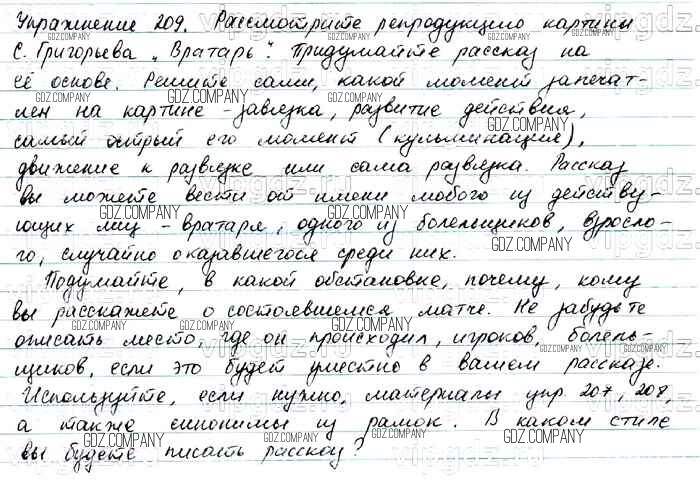 Упражнение 209. Рассмотрите репродукцию картины
С. Григорьева „Вратарь". Придумайте рассказ на
её основе. Решите сами, какой момент запечат-
лен на картине - завязка, развитие действия,
самый острый его момент (кульминация),
движение к развязке или сама развязка. Рассказ
вы можете вести от имени любого из действу-
ющих лиц - вратаря, одного из болельщиков, взросло-
го, случайно оказавшегося среди них.
Подумайте, в какой обстановке, почему, кому
вы расскажете о состоявшемся матче. Не забудьте
описать место, где он происходил, игроков, болель-
щиков, если это будет уместно в вашем рассказе.
Используйте, если нужно, материалы упр. 207, 208,
а также синонимы из рамок. В каком стиле
вы будете писать рассказ?
GDZ.COMPANY
vipgdz.ru